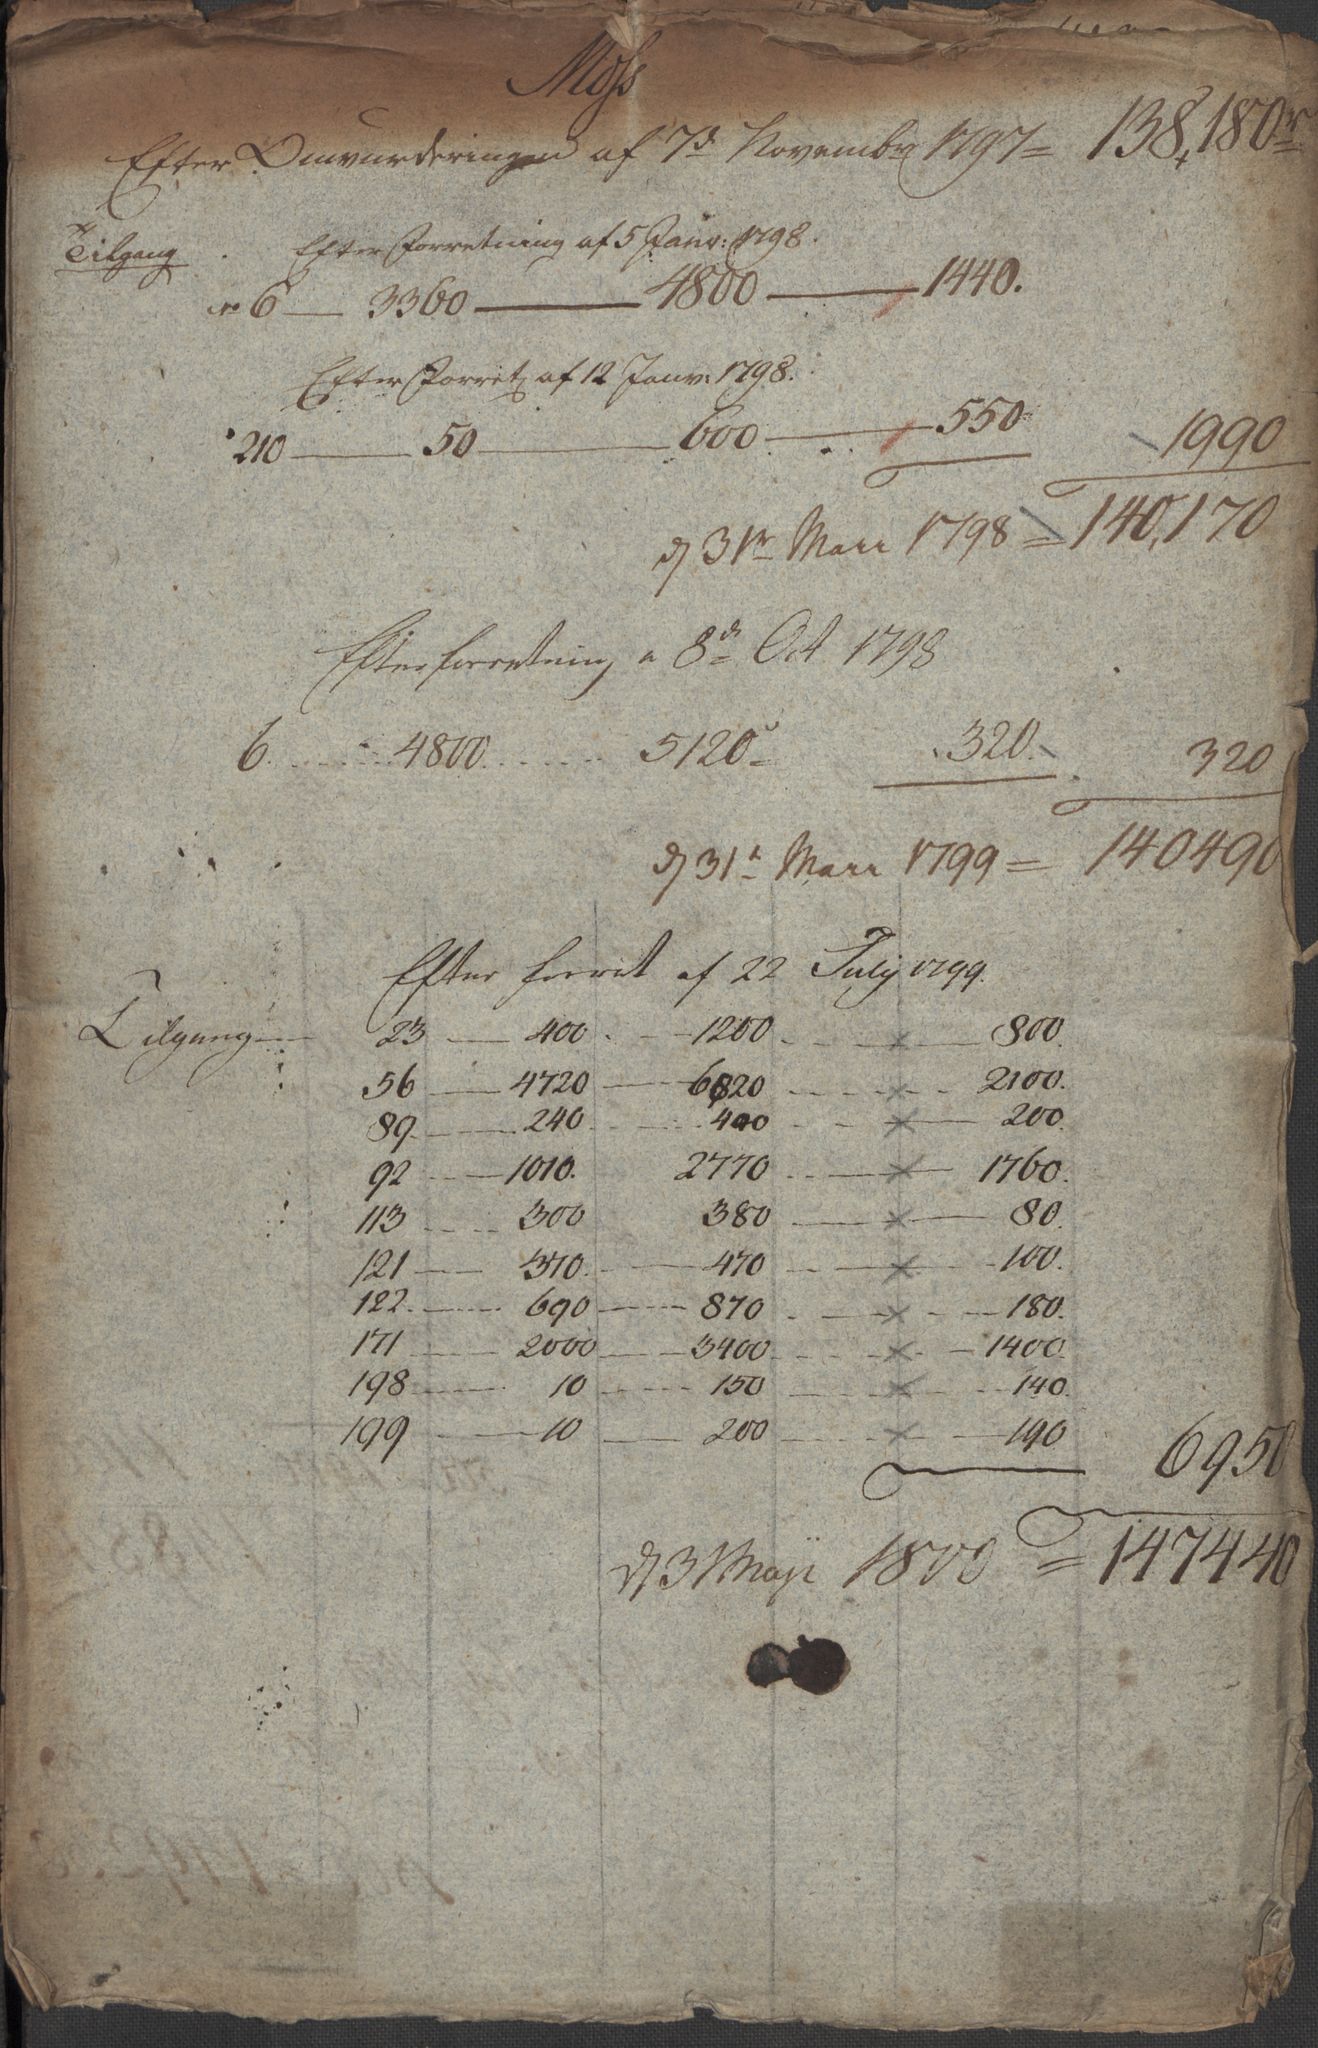 Moss
Efter Omvurderingen af 7d Novembr 1797 = 138,180 r
Tilgang Efter Forretning af 5 Janv: 1798.
No 6 — 3360 — 4800 — 1440.
Efter Forret af 12 Janv: 1798.
210 — 50 — 600 — 550 1990
d 31 Marz 1798 = 140,170
Efter forretning a 8d Oct 1798
6. 4800 5120 320. 320
d 31 Marz 1799 = 140490
Efter forret af 22 July 1799.
Tilgang — 23 — 400 — 1200 — × — 800.
56 — 4720 — 6820 — × — 2100.
89 — 240 — 440 — × — 200.
92 — 1010. 2770 — × — 1760.
113 — 300 380 — × — 80.
121 — 370. 470 — × — 100.
122. — 690 — 870 — × — 180.
171 — 2000 — 3400 — × — 1400.
198 — 10 — 150 — × — 140.
199 — 10 — 200 — × — 190 6950
d 31 Maji 1800 = 147440